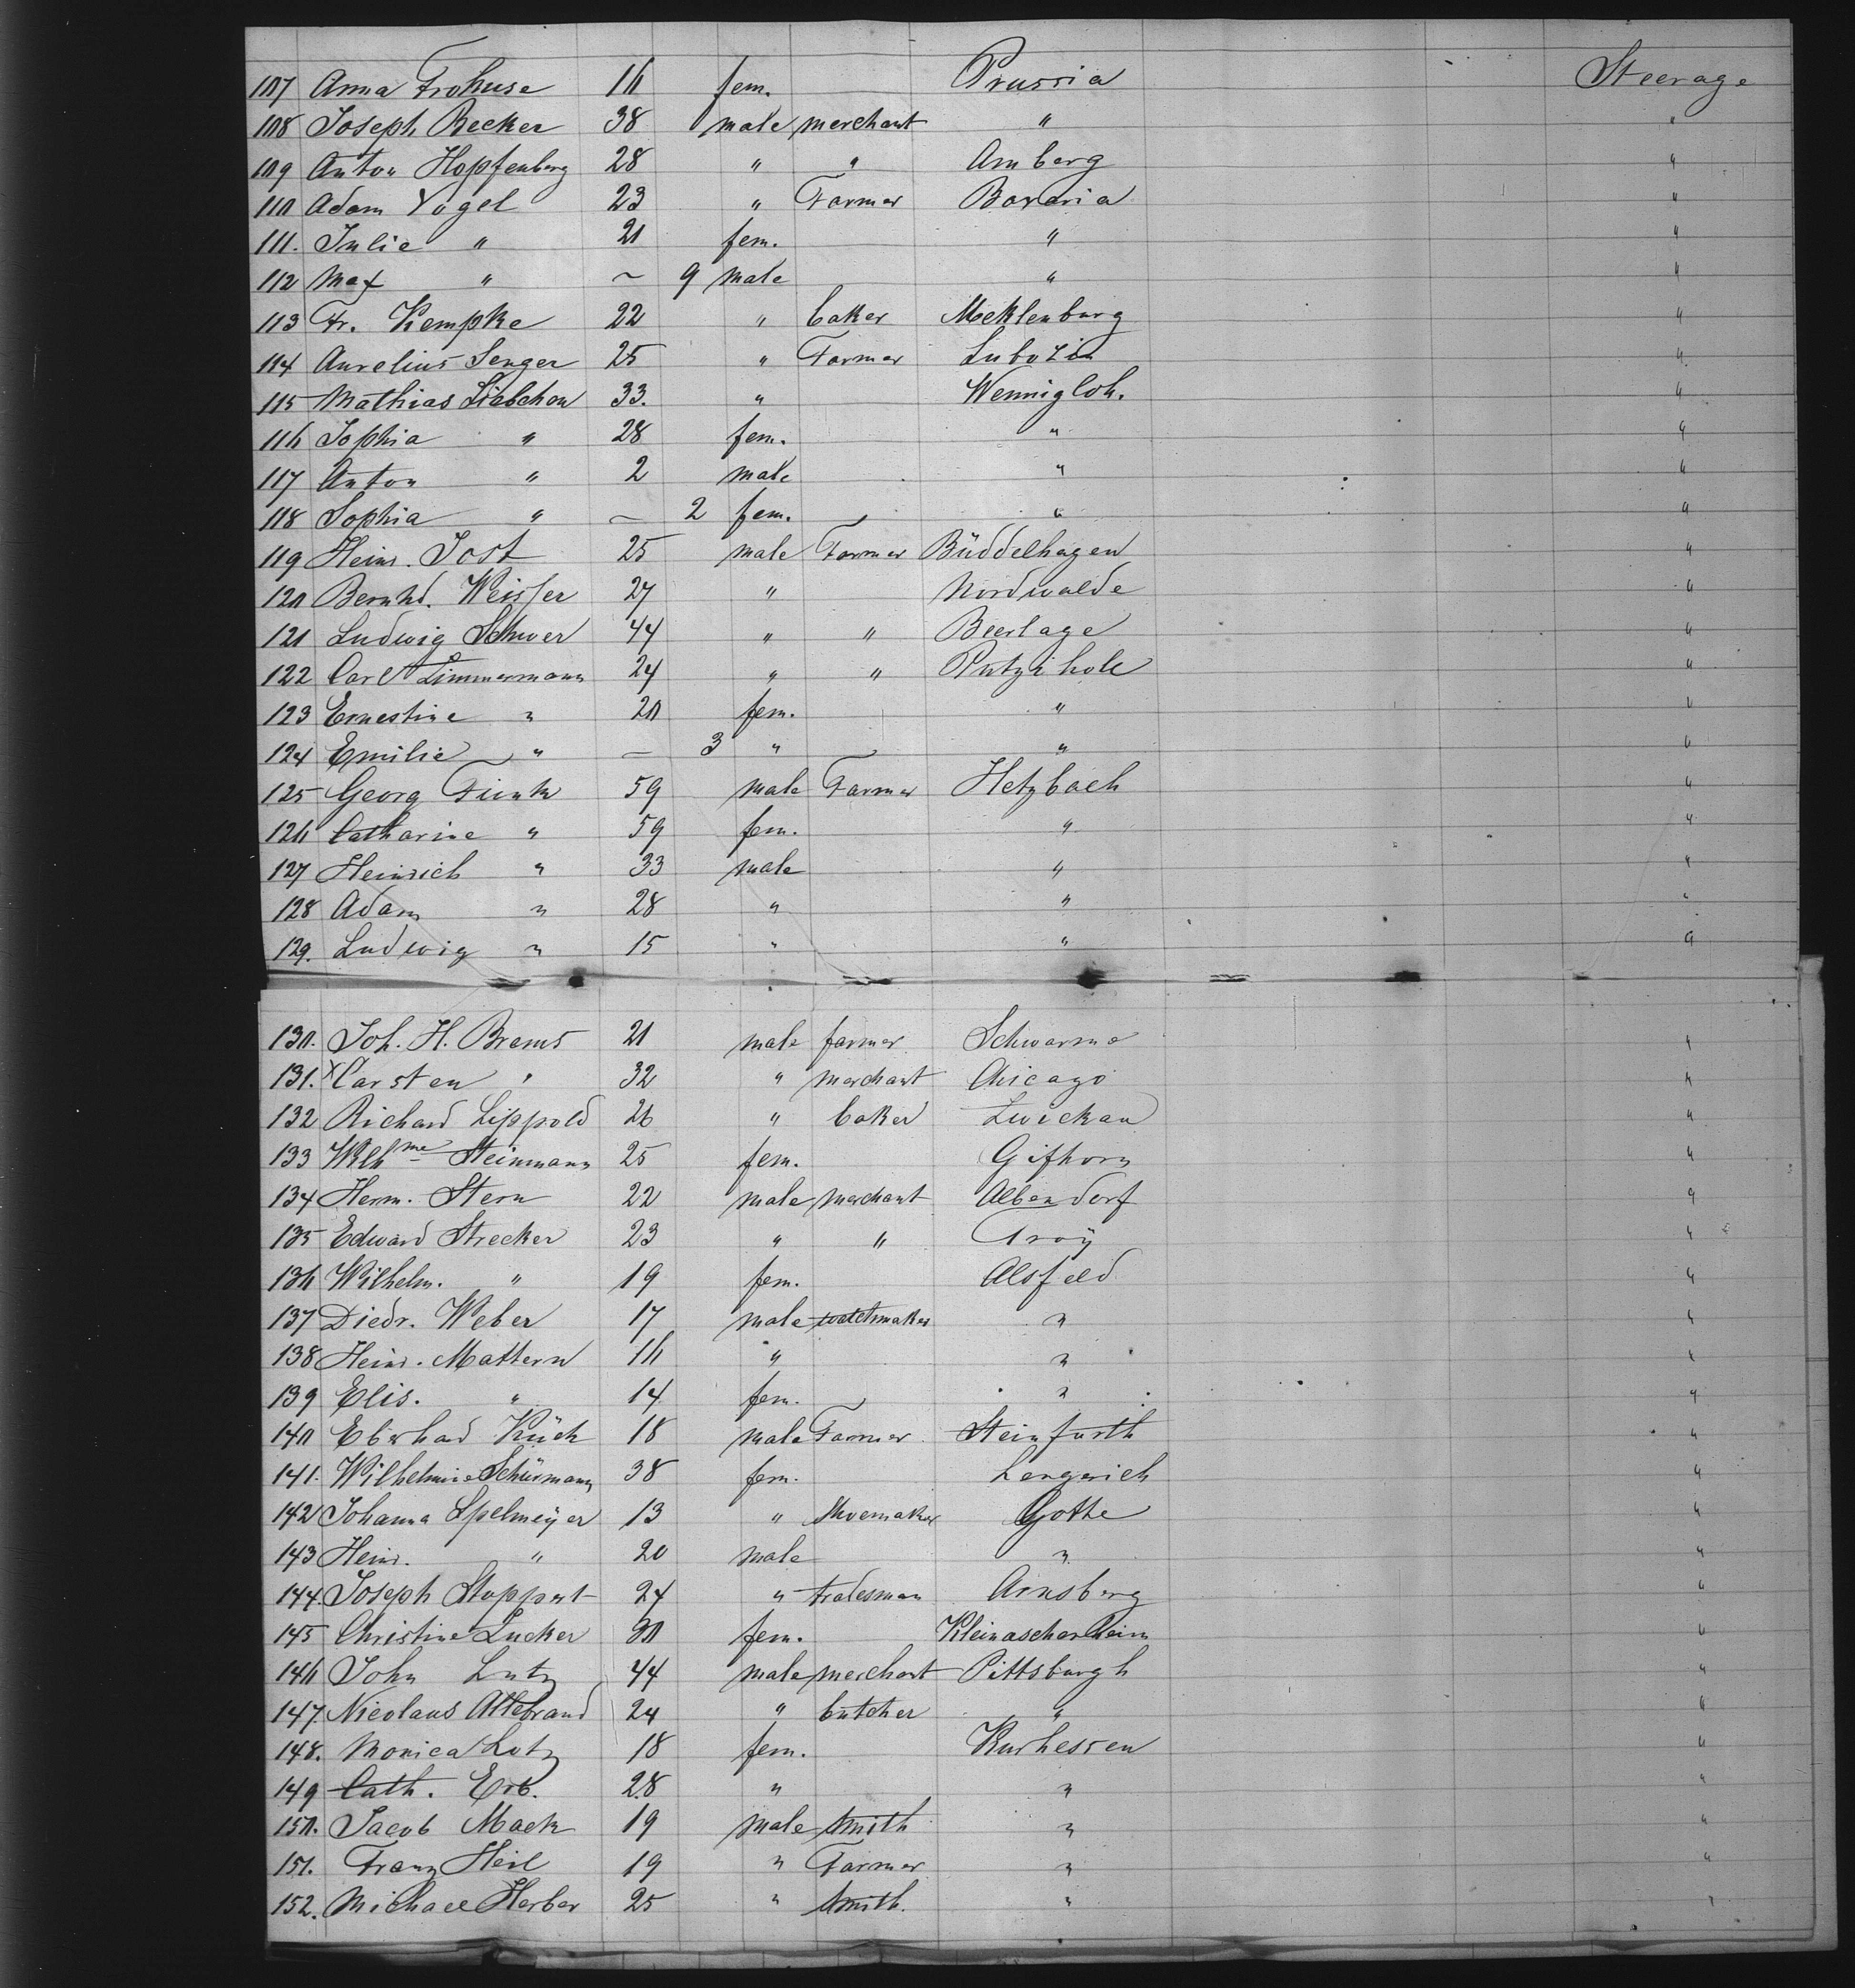 107 Anna Frohuse 16 fem. Prussia Steerage
108 Joseph Becker 38 male merchant " "
109 Anton Hopfenberg 28 " " Amberg "
110 Adam Vogel 23 " Farmer Bavaria "
111. Julie " 21 fem. " "
112 Max " ~ 9 male " "
113 Fr. Kempke 22 " baker Meklenburg "
114 Aurelius Senger 25 " Farmer Lubozin "
115 Mathias Liebchen 33. " Wennigloh. "
116 Sophia " 28 fem. " "
117 Anton " 2 male " "
118 Sophia " ~ 2 fem. " "
119 Heinr. Jost 25 male Farmer Büddelhagen "
120 Bernhd. Weisser 27 " Nordwalde "
121 Ludwig Schwer 44 " " Beerlage "
122 Carl Zimmermann 24 " " "
123 Ernestine " 20 fem. " "
124 Emilie " — 3 " " "
125 Georg Funk 59 male Farmer Hetzbach "
126 Catharine " 59 fem. " "
127 Heinrich " 33 male " "
128 Adam " 28 " " "
129. Ludwig " 15 " " "
130. Joh. H. Brems 21 male farmer Schwarme "
131. x Carsten " 32 " merchant Chicago "
132 Richard Lippold 26 " baker Zwickau "
133 Wilhme Steinmann 25 fem. Gifhorn "
134 Herm. Stern 22 male merchant Albendorf "
135 Edward Strecker 23 " " Troy "
136 Wilhelm. " 19 fem. Alsfeld "
137 Diedr. Weber 17 male watchmaker " "
138 Heinr. Mattern 16 " " "
139 Elis. " 14 fem. " "
140 Eberhard Kück 18 male Farmer Steinfurth "
141. Wilhelmine Schürmann 38 fem. Lengerich "
142 Johanna Spelmeyer 13 " shoemaker Gotha "
143 Heinr. " 20 male " "
144. Joseph Stoppert 24 " tradesman Arnsberg "
145 Christine Zucker 30 fem. Kleinascharheim "
146 John Lutz 44 male merchant Pittsburgh "
147. Nicolaus Altebrand 24 " butcher " "
148. Monica Lotz 18 fem. Kurhessen "
149 Cath. Erb. 28 " " "
150. Jacob Mack 19 male smith " "
151. Franz Heil 19 " Farmer " "
152. Michael Herber 25 " smith. " "